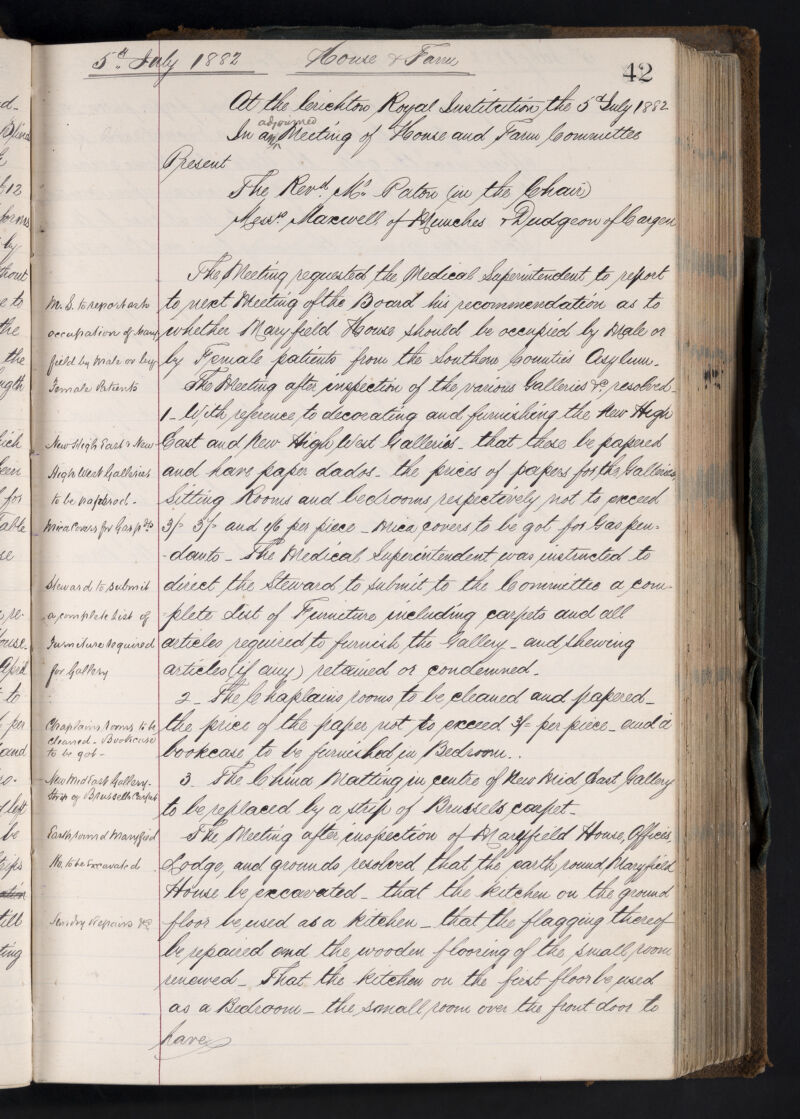 5th July 1882 House & Farm
42
At the Crichton Royal Institution, the 5th July 1882
adjourned
In an Meeting of House and Farm Committee
Present
The Revd. Mr. Paton (in the Chair)
Messrs. Maxwell of Munches & Dudgeon of Cargen
The Meeting requested the Medical Superintendent to report
to next Meeting of the Board his recommendation as to
whether Maryfield House should be occupied by Male or
by Female patients from the Southern Counties Asylum.
The Meeting after inspection of the various Galleries &c, resolved
1_ With reference to decorating and furnishing the New High
East and New High West Galleries_ that these be papered
and have paper dados_ the prices of papers for the Galleries,
Sitting Rooms and bedrooms respectively not to exceed
3/= 3/= and per piece_ Mica covers to be got for Gas pen=
=dants_ The Medical Superintendent was instructed to
direct the Steward to submit to the Committee a com=
=plete List of Furniture including carpets and all
articles required to furnish the Gallery_ and shewing
articles (if any) retained or condemned_
2_ The Chaplains rooms to be cleaned and papered_
the price of the paper not to exceed 3/= per piece_ and a
bookcase to be furnished in Bedroom..
3_ The China Matting in centre of New Mid East Gallery
to be replaced by a strip of Brussels carpet_
The Meeting after inspection of Maryfield House, Offices,
Lodge, and grounds resolved that the earth round Maryfield
House be excavated_ that the kitchen on the ground
floor be used as a kitchen_ that the flagging thereof
be repaired and the wooden flooring of the small room
renewed_ That the kitchen on the first floor be used
as a Bedroom_ the small room over the front door to
have
M. S. to report as to
occupation of Mary
field by Male or by
Female Patients
New High East & New
High West Galleries
to be papered_
Mica Covers for Gas pdts
Steward to submit
a complete List of
Furniture required
for Gallery
Chaplains rooms to be
cleaned_ Bookcase
to be got_
New Mid East Gallery_
Strip of Brussels Carpet
Earth round Maryfield
Ho. to be Excavated
Sundry Repairs &c